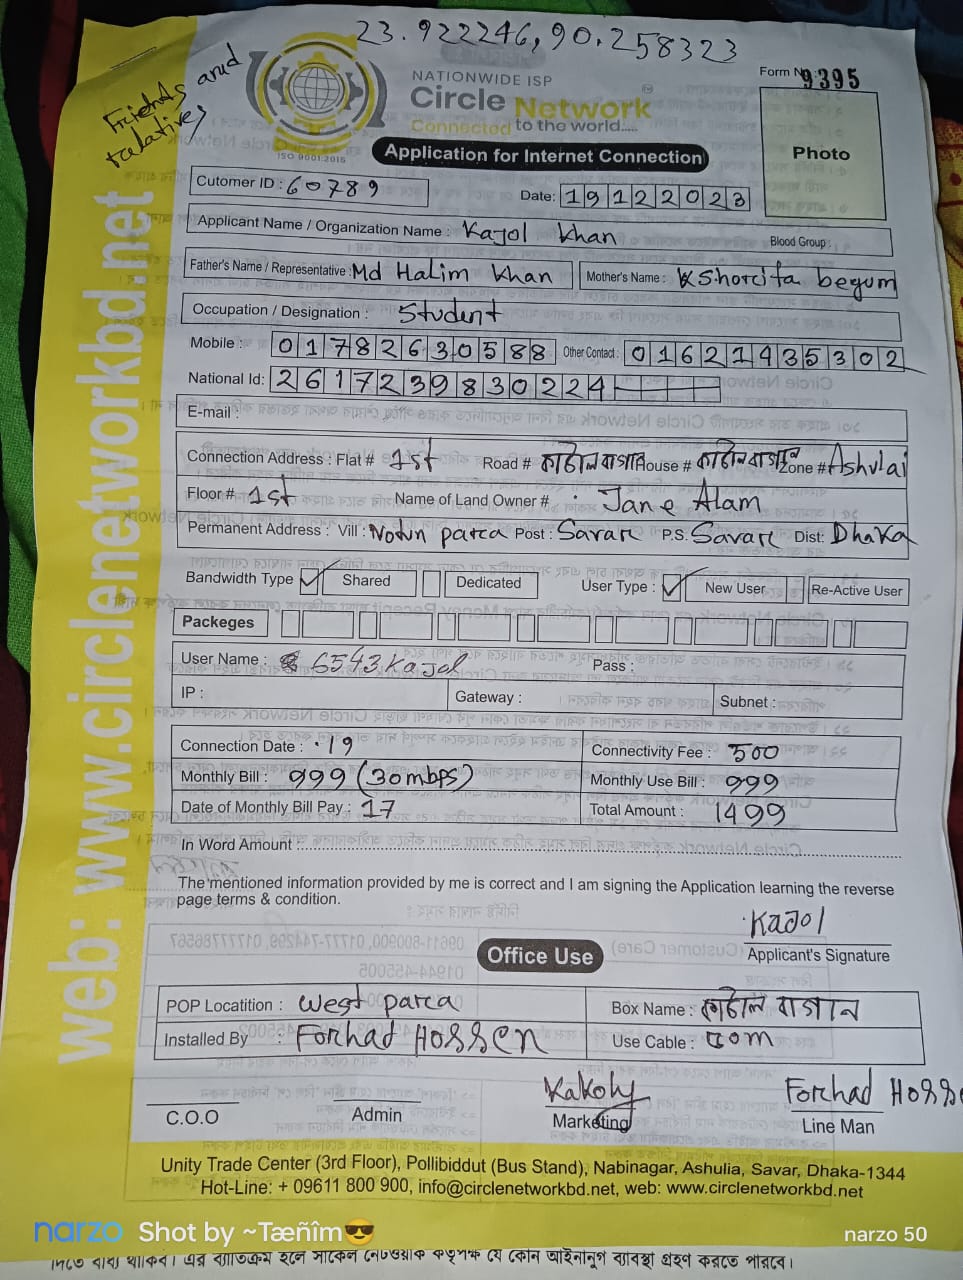 23.922246, 90.258323
Friends and
relatives
NATIONWIDE ISP
Circle Network
Connected to the world.....
ISO 9001:2015
Form No 9395
Photo
Application for Internet Connection
Cutomer ID : 60789
Date: 19122023
Applicant Name / Organization Name : Kajol Khan
Blood Group :
Father's Name / Representative : Md Halim Khan Mother's Name :
begum
Occupation / Designation : Student
Mobile : 01782630588 Other Contact : 01621435302
National Id: 2617239830224
E-mail :
Connection Address : Flat # 1st Road # কাঠালবাগান House # কাঠালবাগান Zone # Ashulai
Floor # 1st Name of Land Owner # Jane Alam
Permanent Address : Vill : Notun parca Post : Savar P.S. Savar Dist: Dhaka
Bandwidth Type ✓ Shared Dedicated User Type : ✓ New User Re-Active User
Packeges
User Name : 6543Kajol Pass :
IP : Gateway : Subnet :
Connection Date : 19 Connectivity Fee : 500
Monthly Bill : 999 (30mbps) Monthly Use Bill : 999
Date of Monthly Bill Pay : 17 Total Amount : 1499
In Word Amount :
The mentioned information provided by me is correct and I am signing the Application learning the reverse
page terms & condition.
Kajol
Applicant's Signature
Office Use
POP Locatition : West parca Box Name : কাঠাল বাগান
Installed By : Forhad Hossen Use Cable :
Kakoly Forhad Hosse
C.O.O Admin Marketing Line Man
Unity Trade Center (3rd Floor), Pollibiddut (Bus Stand), Nabinagar, Ashulia, Savar, Dhaka-1344
Hot-Line: + 09611 800 900, info@circlenetworkbd.net, web: www.circlenetworkbd.net
web: www.circlenetworkbd.net
narzo Shot by ~Tæñîm😎 narzo 50
দিতে বাধ্য থাকিব। এর ব্যাতিক্রম হলে সার্কেল নেটওয়ার্ক কতৃপক্ষ যে কোন আইনানুগ ব্যাবস্থা গ্রহণ করতে পারবে।